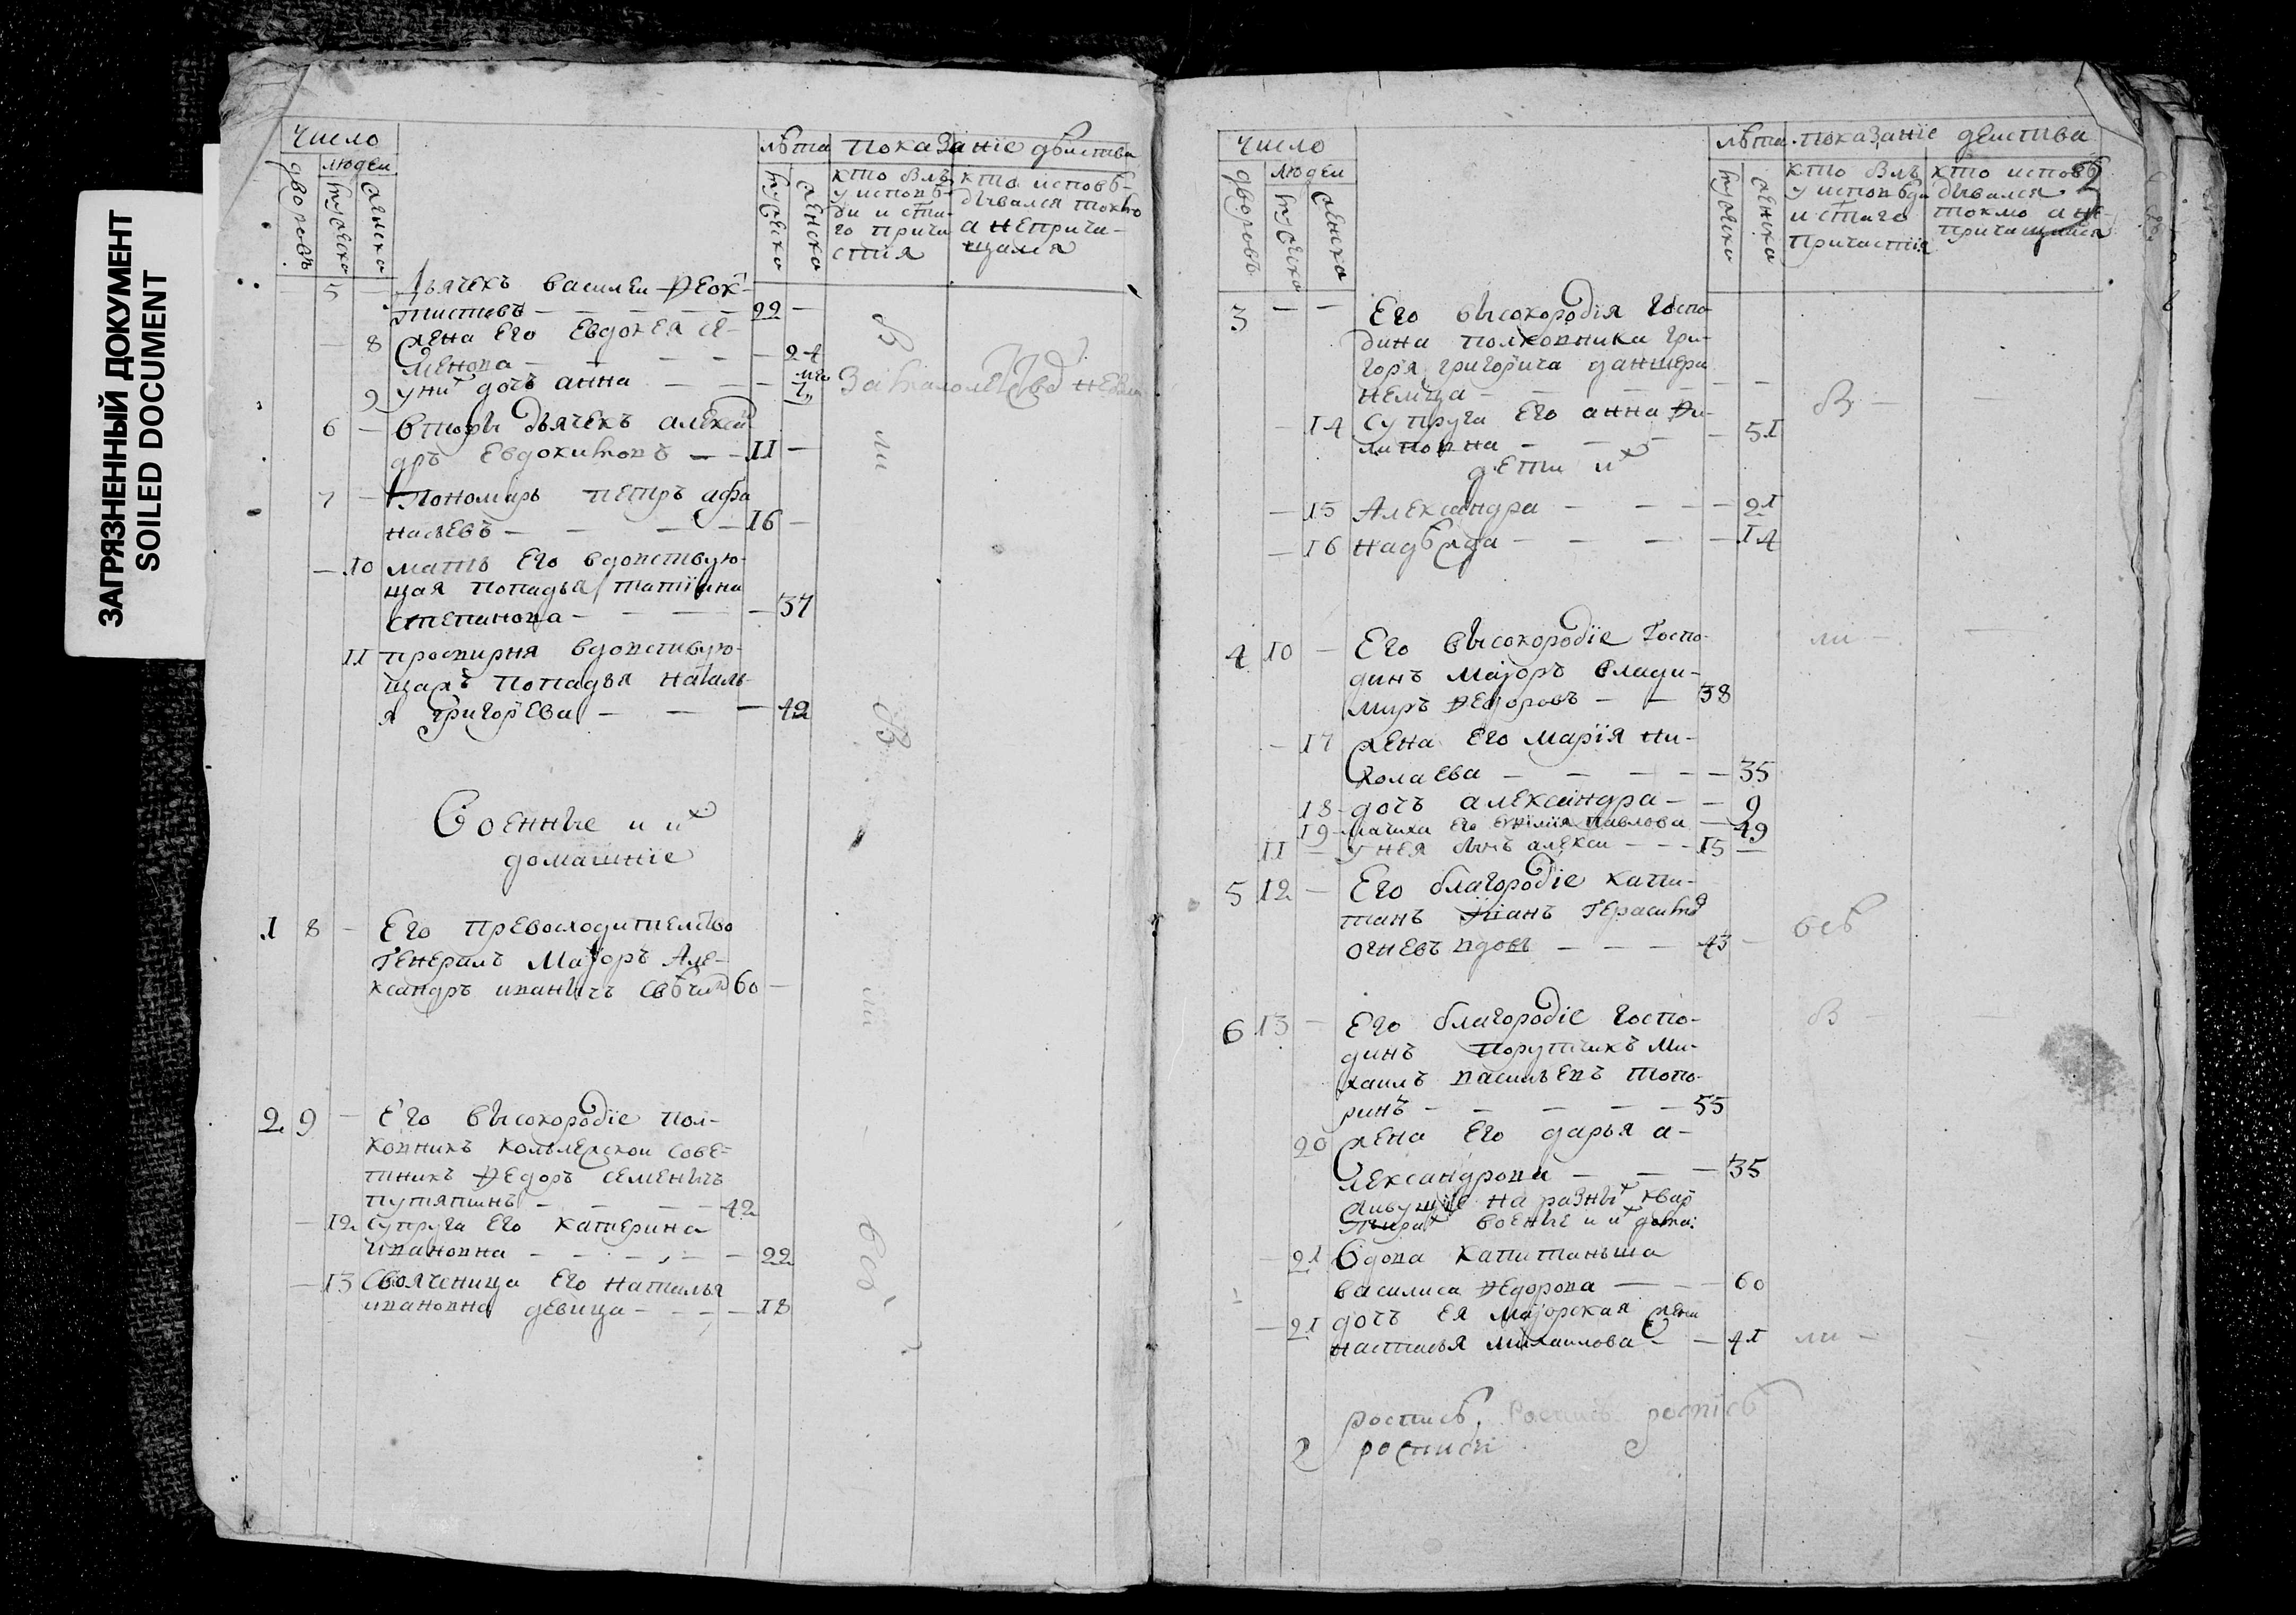 ЗАГРЯЗНЕННЫЙ ДОКУМЕНТ
SOILED DOCUMENT
число
лѣта показаніе дѣиства
дворовъ
людеи
мужеска
женска
мужеска
женска
кто былъ
у исповѣ-
ди и с͠та-
го прича
стія
кто исповѣ-
дывался токмо
а неприча-
щался
5 — дьячекъ василеи Ѳеок-
тистовъ — — — — 22 —
— 8 жена Его Евдокея се-
менова — — — — 24
9 у них дочь анна — — —
За малолетство
6 — вторы дьячекъ алексан
дръ Евдокимовъ — — 11 —
7 — Пономарь петръ афа
насьевъ — — — — 16 —
— 10 мать Его вдовствую-
щая попадья татіяна
степанова — — — — 37
11 просвирня вдовствую-
щая попадья наталь-
я григорЕва — — — 42
Военные и их
домашніе
1 8 — Его превосходителство
Генералъ Маіоръ Але-
ксандръ иванычъ 60 —
2 9 — Его высокородіе пол-
ковникъ колълежскои сове-
тникъ Ѳедоръ семенычъ
путятинъ — — — — 42
— 12 супруга Его катерина
ивановна — — — — — 22
— 13 своячЕница Его наталья
ивановна девица — — — 18
число
лѣта показанїе деиства
дворовъ
людеи
мужеска
женска
мужеска
женска
кто былъ
у исповѣди
и с͠таго
причастїя
кто исповѣ
дывался
токмо а не
причащался
3 — — Его высокородія госпо-
дина полковника гри-
горя григорича
— —
— 14 супруга Его анна Фи-
липовна — — — — 51
дети их
— 15 Александра — — — 21
— 16 надѣжда — — — — 14
4 10 — Его высокородїе Госпо-
динъ маіоръ влади-
миръ Ѳедоровъ — — 38
— 17 жена Его марїя ни-
колаева — — — — — 35
18 — дочь александра — — 9
19 — мачиха Его Павлова — 49
11 — у нея сынъ алекси — — — 15 —
5 12 — Его благородіе капи-
танъ Герасимо
огневъ вдовъ — — — 43 —
6 13 — Его благородіе госпо-
динъ порутчикъ ми-
хаилъ васильевъ топо-
ринъ — — — — — 55
20 жена Его дарья а-
лександрова — — — 35
живущіе на разных квар
тирах военые и их дома:
— 21 вдова капитанъша
василиса Ѳедорова — — — 60
— 21 дочь ея маіорская жена
настасья михаилова — — 41
роспись. Роспись роспись
2 росписи